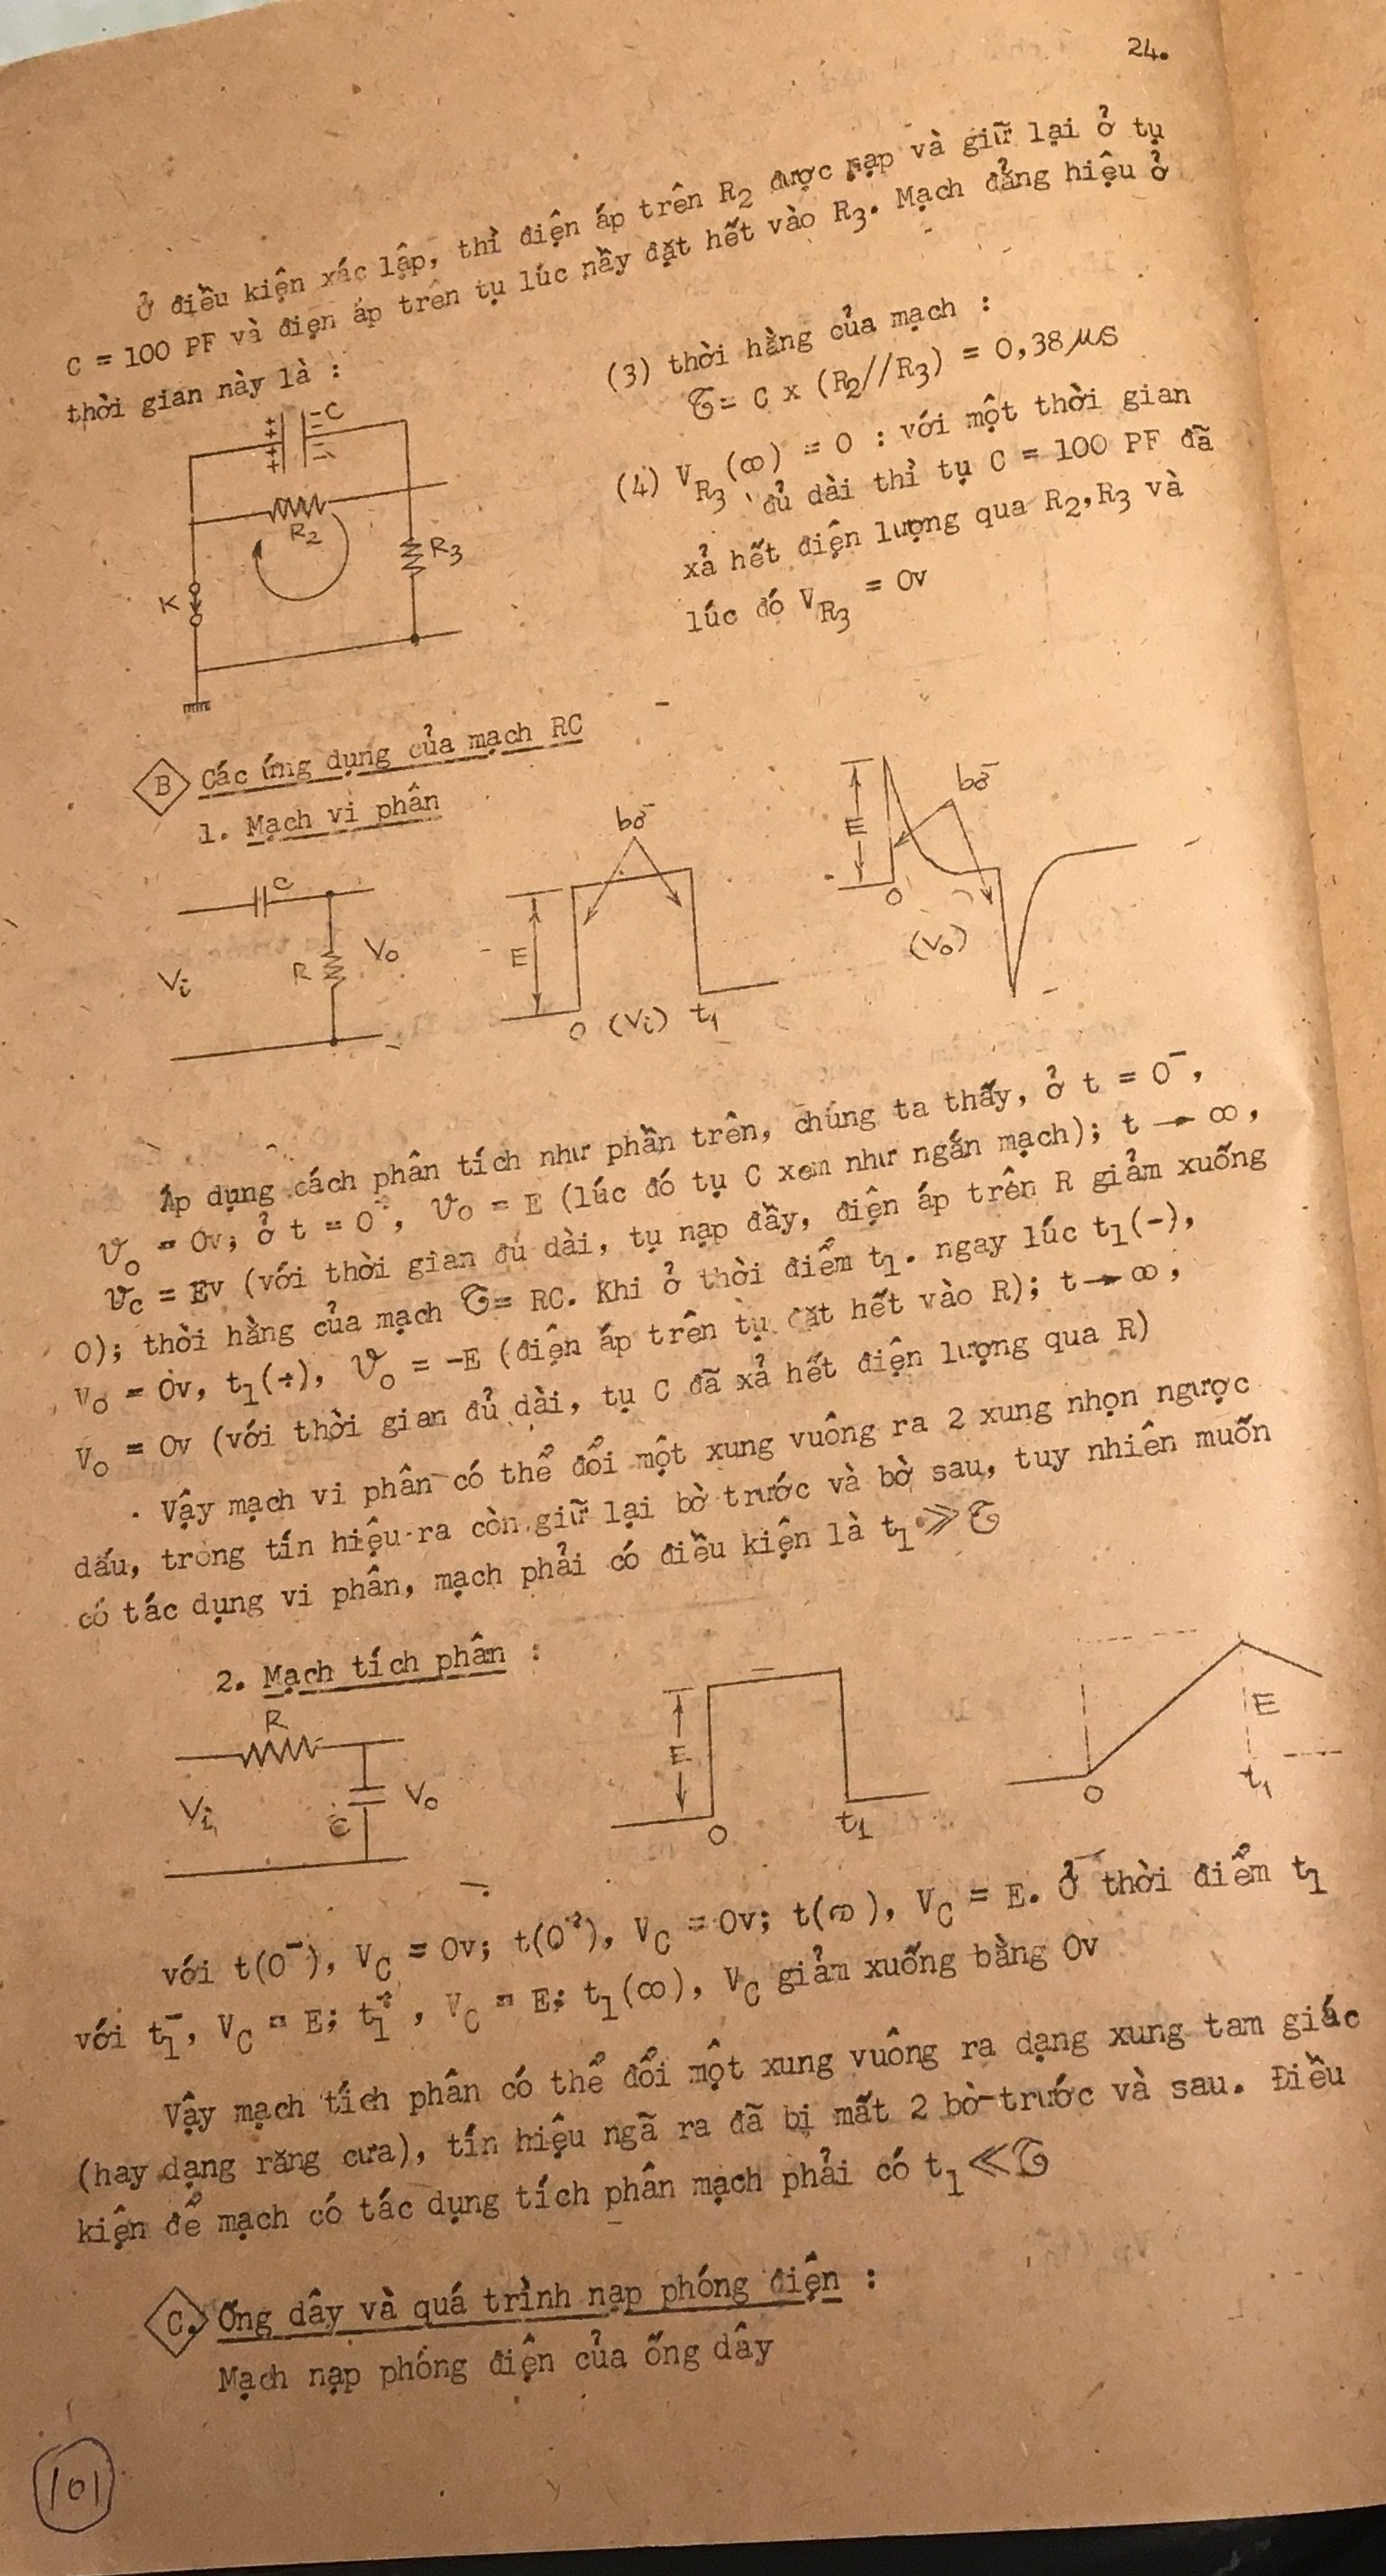 24.
Ở điều kiện xác lập, thì điện áp trên R2 được nạp và giữ lại ở tụ
C = 100 PF và điện áp trên tụ lúc nầy đặt hết vào R3. Mạch đẳng hiệu ở
thời gian này là :
++ ++ - - - C
R2
R3
K
(3) thời hằng của mạch :
τ = C x (R2//R3) = 0,38 μs
(4) VR3 (∞) = 0 : với một thời gian
đủ dài thì tụ C = 100 PF đã
xả hết điện lượng qua R2,R3 và
lúc đó VR3 = 0v
B Các ứng dụng của mạch RC
1. Mạch vi phân
C
Vi
R
Vo
bờ
E
0 (Vi) t1
bờ
E
0
(Vo)
Áp dụng cách phân tích như phần trên, chúng ta thấy, ở t = 0⁻,
vo = 0v; ở t = 0⁺, vo = E (lúc đó tụ C xem như ngắn mạch); t → ∞,
vc = Ev (với thời gian đủ dài, tụ nạp đầy, điện áp trên R giảm xuống
0); thời hằng của mạch τ = RC. Khi ở thời điểm t1. ngay lúc t1(-),
vo = 0v, t1(+), vo = -E (điện áp trên tụ đặt hết vào R); t → ∞,
Vo = 0v (với thời gian đủ dài, tụ C đã xả hết điện lượng qua R)
Vậy mạch vi phân có thể đổi một xung vuông ra 2 xung nhọn ngược
dấu, trong tín hiệu ra còn giữ lại bờ trước và bờ sau, tuy nhiên muốn
có tác dụng vi phân, mạch phải có điều kiện là t1 ≫ τ
2. Mạch tích phân :
R
Vi
C
Vo
E
0
t1
E
0
t1
với t(0⁻), VC = 0v; t(0⁺), VC = 0v; t(∞), VC = E. Ở thời điểm t1
với t1⁻, VC = E; t1⁺, VC = E; t1(∞), VC giảm xuống bằng 0v
Vậy mạch tích phân có thể đổi một xung vuông ra dạng xung tam giác
(hay dạng răng cưa), tín hiệu ngã ra đã bị mất 2 bờ trước và sau. Điều
kiện để mạch có tác dụng tích phân mạch phải có t1 ≪ τ
C. Ống dây và quá trình nạp phóng điện :
Mạch nạp phóng điện của ống dây
101